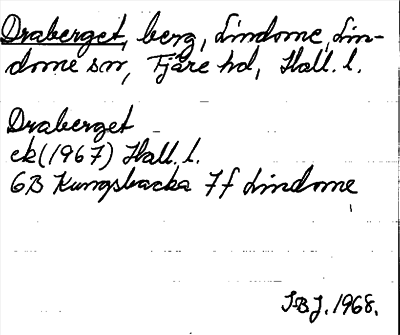 Draberget, berg, Lindome, Lin-
dome sn, Fjäre hd, Hall. l.
Draberget
ek (1967) Hall. l.
6B Kungsbacka 7f Lindome
I.B.J. 1968.